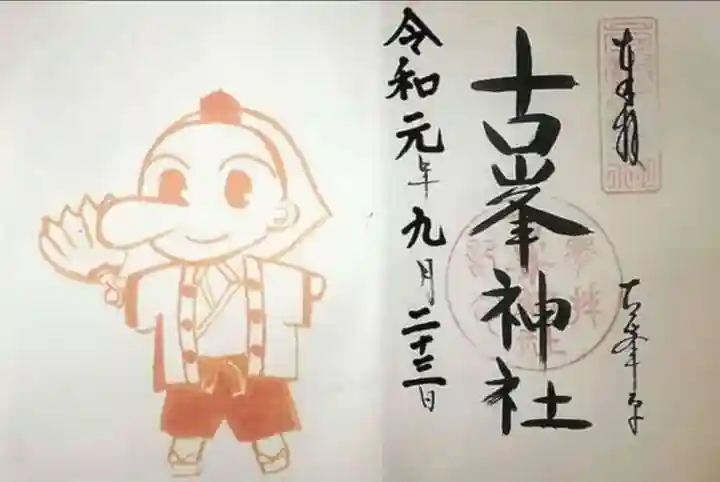 奉拝
古峯神社
古峯原
令和元年九月二十三日